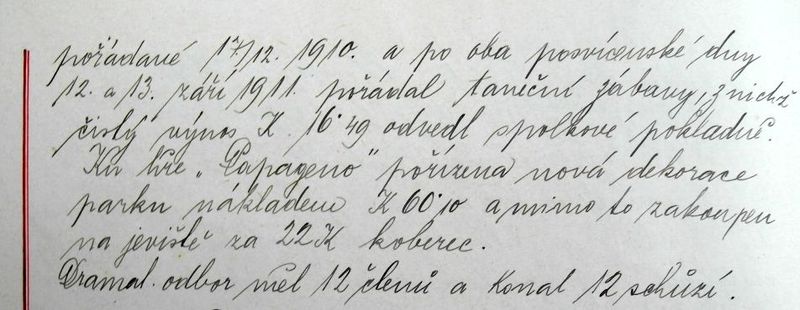 pořádané 17/12. 1910. a po oba posvícenské dny
12. a 13. září 1911. pořádal taneční zábavy, z nichž
čistý výnos K. 16·49 odvedl spolkové pokladně.
Ku hře „Papageno" pořízena nová dekorace
parku nákladem K 60·10 a mimo to zakoupen
na jeviště za 22 K koberec.
Dramat. odbor měl 12 členů a konal 12 schůzí.